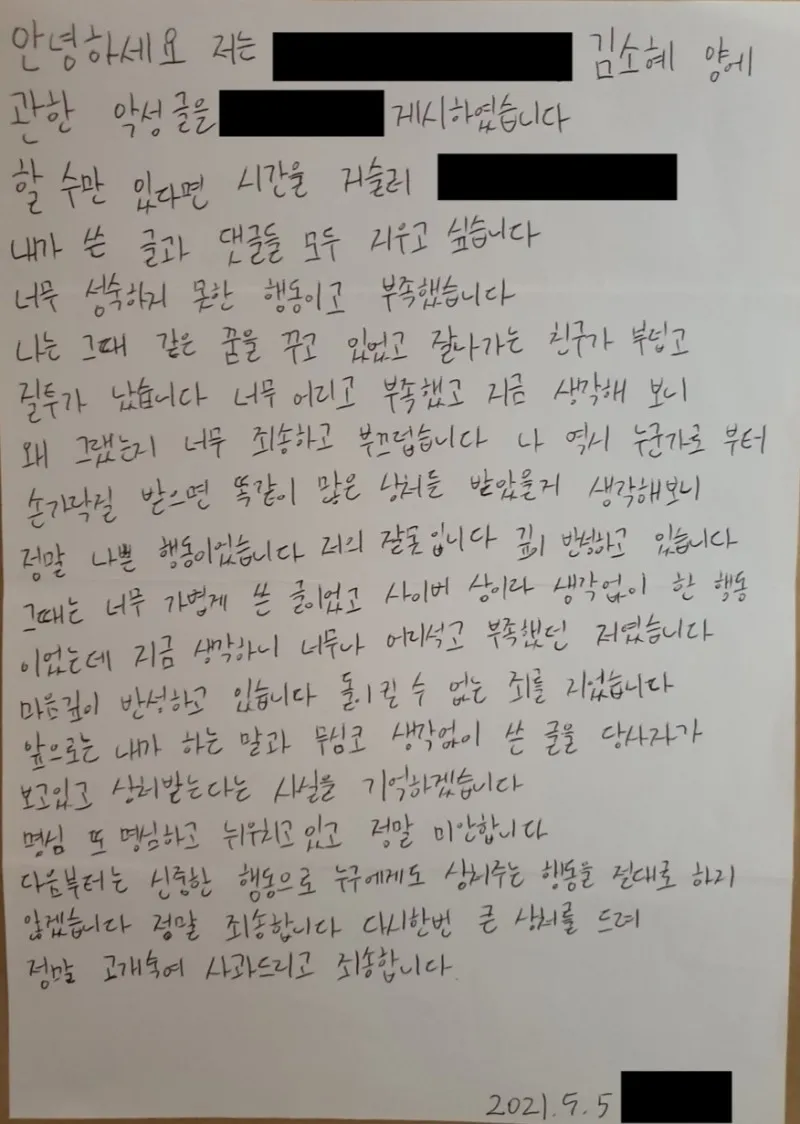 안녕하세요 저는 김소혜 양에
관한 악성글을 게시하였습니다
할 수만 있다면 시간을 거슬러
내가 쓴 글과 댓글들 모두 지우고 싶습니다
너무 성숙하지 못한 행동이고 부족했습니다
나는 그때 같은 꿈을 꾸고 있었고 잘나가는 친구가 부럽고
질투가 났습니다 너무 어리고 부족했고 지금 생각해 보니
왜 그랬는지 너무 죄송하고 부끄럽습니다 나 역시 누군가로 부터
손가락질 받으면 똑같이 많은 상처를 받았을거 생각해보니
정말 나쁜 행동이었습니다 저의 잘못입니다 깊이 반성하고 있습니다
그때는 너무 가볍게 쓴 글이었고 사이버 상이라 생각없이 한 행동
이었는데 지금 생각하니 너무나 어리석고 부족했던 저였습니다
마음깊이 반성하고 있습니다 돌이킬 수 없는 죄를 지었습니다
앞으로는 내가 하는 말과 무심코 생각없이 쓴 글을 당사자가
보고있고 상처받는다는 사실을 기억하겠습니다
명심 또 명심하고 뉘우치고있고 정말 미안합니다
다음부터는 신중한 행동으로 누구에게도 상처주는 행동을 절대로 하지
않겠습니다 정말 죄송합니다 다시한번 큰 상처를 드려
정말 고개숙여 사과드리고 죄송합니다.
2021.5.5